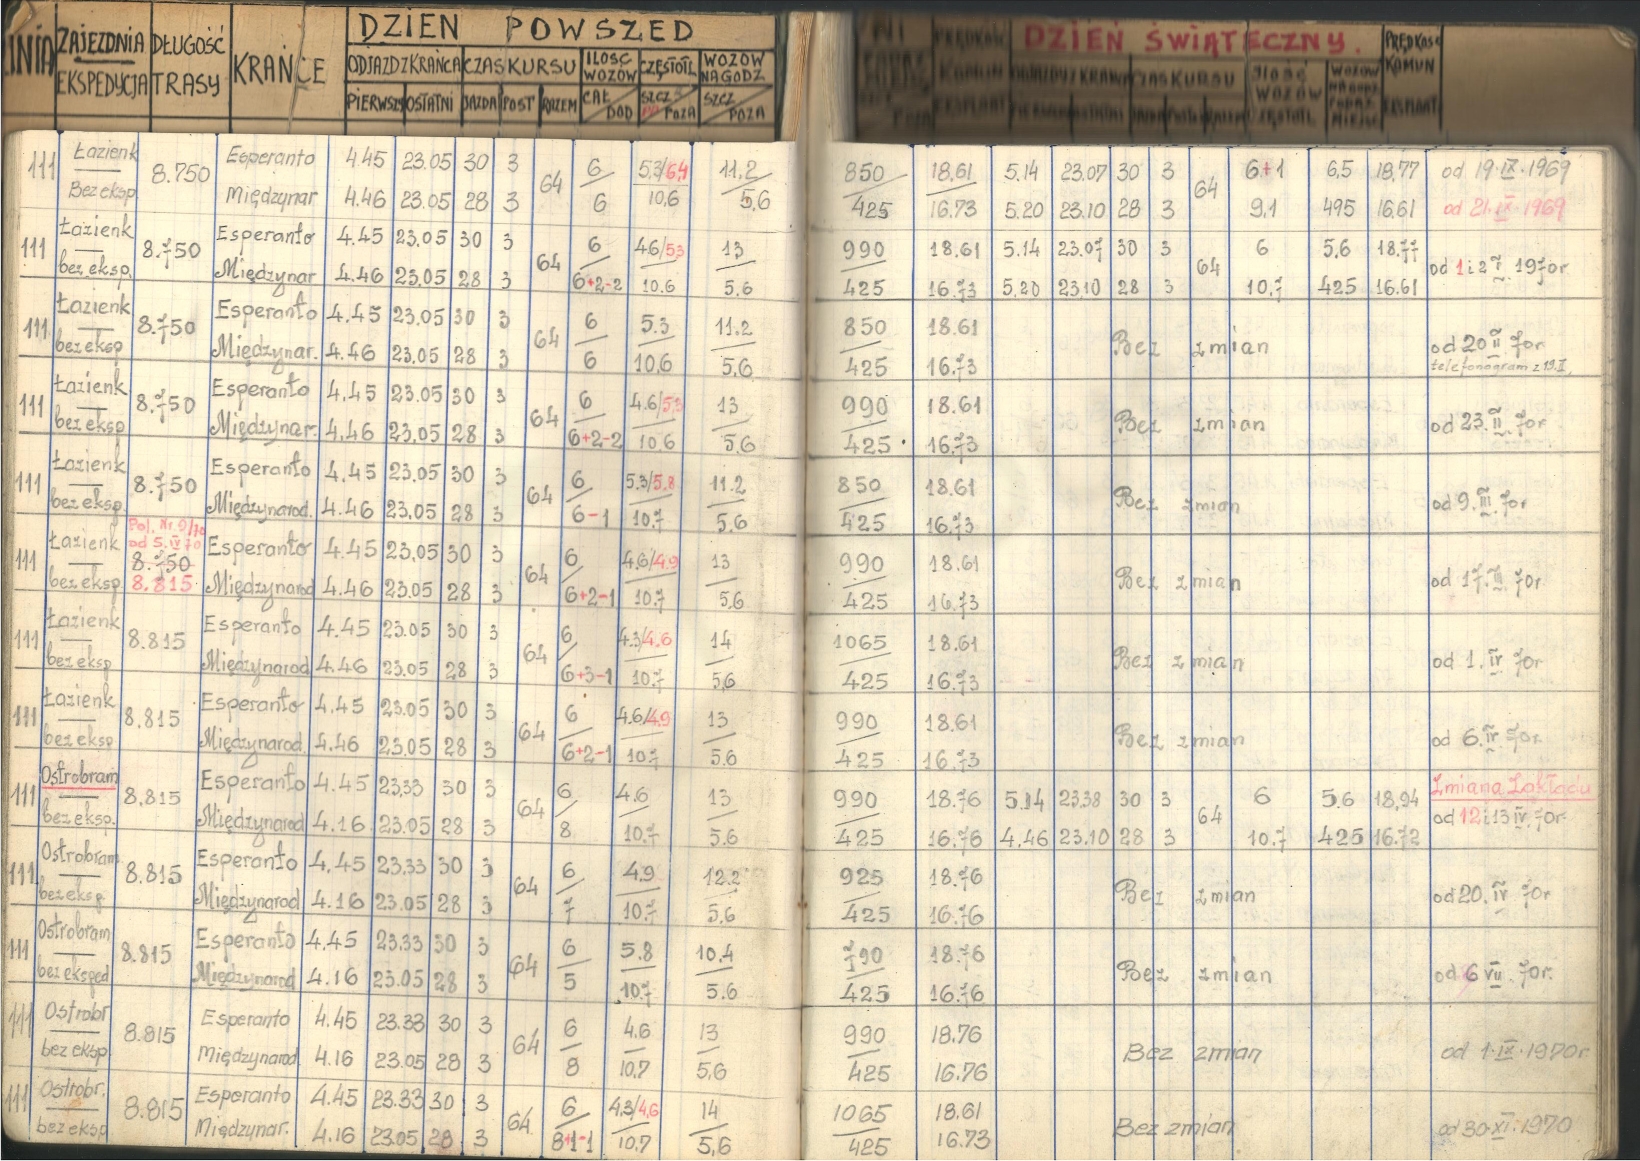 LINIA ZAJEZDNIA DŁUGOŚĆ KRAŃCE DZIEŃ POWSZED DZIEŃ ŚWIĄTECZNY. PRĘDKOŚĆ
EKSPEDYCJA TRASY ODJAZD Z KRAŃCA CZAS KURSU ILOŚĆ WOZÓW CZĘSTOTL WOZÓW NA GODZ KOMUN
PIERWSZY OSTATNI JAZDA POST RAZEM CAŁ DOD SZCZ POZA SZCZ POZA EKSPLOAT
111 Łazienk 8.750 Esperanto 4.45 23.05 30 3 64 6 5,3/6,4 11,2 850 18,61 5.14 23.07 30 3 64 6+1 6,5 18,77 od 19.IX.1969
Bez eksp Międzynar 4.46 23.05 28 3 6 10,6 5,6 425 16.73 5.20 23.10 28 3 9,1 495 16,61 od 21.IX.1969
111 Łazienk 8.750 Esperanto 4.45 23.05 30 3 64 6 4.6/5.3 13 990 18.61 5.14 23.07 30 3 64 6 5.6 18.77 od 1 i 2 I 1970r
bez eksp. Międzynar 4.46 23.05 28 3 6+2-2 10.6 5.6 425 16.73 5.20 23.10 28 3 10.7 425 16.61
111 Łazienk 8.750 Esperanto 4.45 23.05 30 3 64 6 5.3 11.2 850 18.61 Bez zmian od 20 II 70r
bez eksp Międzynar. 4.46 23.05 28 3 6 10,6 5,6 425 16.73 telefonogram z 19.II
111 Łazienk 8.750 Esperanto 4.45 23.05 30 3 64 6 4.6/5.3 13 990 18.61 Bez zmian od 23.II.70r
bez eksp Międzynar. 4.46 23.05 28 3 6+2-2 10,6 5,6 425 16.73
111 Łazienk 8.750 Esperanto 4.45 23.05 30 3 64 6 5.3/5.8 11.2 850 18.61 Bez zmian od 9.III.70r
bez eksp Międzynarod. 4.46 23.05 28 3 6-1 10.7 5,6 425 16.73
Pol. Nr 9/70
od 5.IV 70
111 Łazienk 8.750 Esperanto 4.45 23.05 30 3 64 6 4.6/4.9 13 990 18.61 Bez zmian od 17.III.70r
bez eksp 8.815 Międzynarod 4.46 23.05 28 3 6+2-1 10.7 5,6 425 16.73
111 Łazienk 8.815 Esperanto 4.45 23.05 30 3 64 6 4.3/4.6 14 1065 18.61 Bez zmian od 1.IV 70r
bez eksp Międzynarod 4.46 23.05 28 3 6+3-1 10.7 5,6 425 16.73
111 Łazienk 8.815 Esperanto 4.45 23.05 30 3 64 6 4.6/4.9 13 990 18.61 Bez zmian od 6.IV 70r
bez eksp Międzynarod. 4.46 23.05 28 3 6+2-1 10.7 5.6 425 16.73
111 Ostrobram 8.815 Esperanto 4.45 23.33 30 3 64 6 4.6 13 990 18.76 5.14 23.38 30 3 64 6 5.6 18,94 Zmiana Zakładu
bez eksp. Międzynarod 4.16 23.05 28 3 8 10.7 5.6 425 16.76 4.46 23.10 28 3 10.7 425 16.72 od 12 i 13 IV 70r
111 Ostrobram 8.815 Esperanto 4.45 23.33 30 3 64 6 4.9 12.2 925 18.76 Bez zmian od 20.IV 70r
bez eksp Międzynarod 4.16 23.05 28 3 7 10.7 5.6 425 16.76
111 Ostrobram 8.815 Esperanto 4.45 23.33 30 3 64 6 5.8 10,4 790 18.76 Bez zmian od 6 VII. 70r.
bez eksped Międzynarod 4.16 23.05 28 3 5 10.7 5.6 425 16.76
111 Ostrobr 8.815 Esperanto 4.45 23.33 30 3 64 6 4.6 13 990 18.76 Bez zmian od 1.IX.1970r
bez eksp Międzynarod 4.16 23.05 28 3 8 10,7 5,6 425 16.76
111 Ostrobr. 8.815 Esperanto 4.45 23.33 30 3 64. 6 4,3/4,6 14 1065 18.61 Bez zmian od 30.XI.1970
bez eksp Międzynar. 4.16 23.05 28 3 8+1-1 10,7 5,6 425 16.73